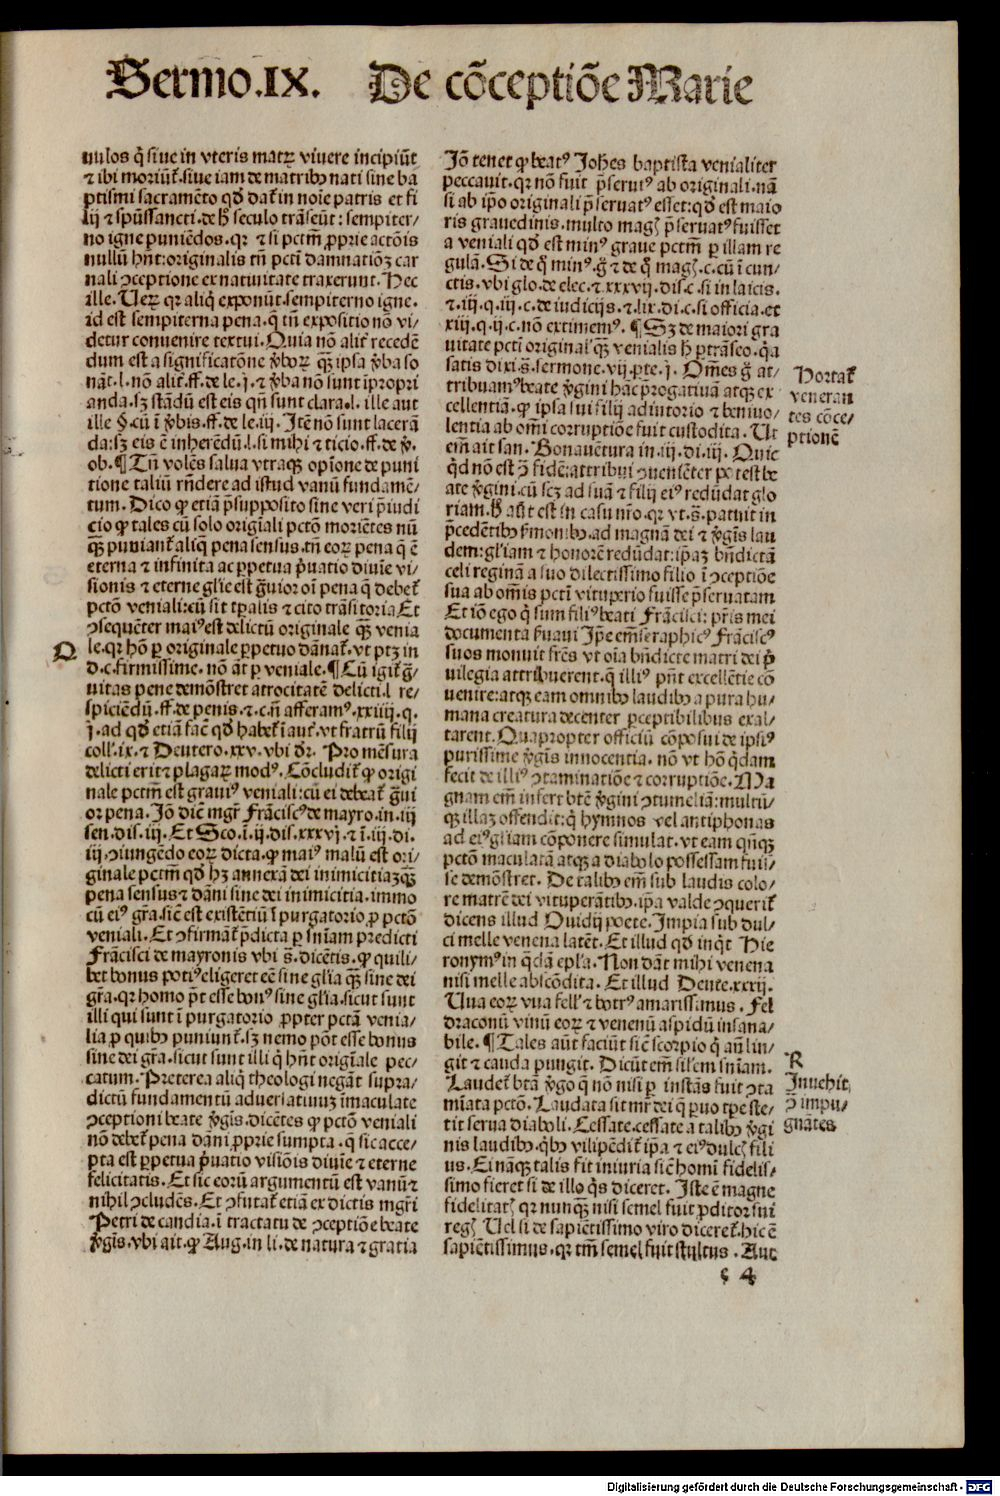 Sermo.IX. De cōceptiōe Marie
uulos q̄ siue in vteris matꝝ viuere incipiūt
⁊ ibi moriūt᷑.siue iam de matribꝰ nati sine ba
ptismi sacramēto qḋ dat᷑ in noīe patris et fi
lij ⁊ spūssancti.de hͦ seculo trāseūt : sempiter/
no igne puniēdos.qꝛ ⁊ si pctm̄ ꝓprie actōis
nullū hn̄t:originalis tn̄ pcti damnatiōꝫ car
nali ꝯceptione ex natiuitate traxerunt. Hec
ille. Ueꝝ qꝛ aliq̇ exponūt.sempiterno igne.
id est sempiterna pena.q̄ tn̄ expositio nō vi/
detur conuenire textui. Quia nō alit᷑ recedē
dum est a significatōne v̓boꝝ qꝫ̄ ipsa v̓ba so
nāt.l. nō alit᷑.ff.de le.j.⁊ v̓ba nō sunt īpropri
anda.sꝫ stādū est eis qn̄ sunt clara.l. ille aut
ille §.cū ī v̓bis.ff.de le.iij. Itē nō sunt lacerā
da:sꝫ eis ē inherēdū.l.si mihi ⁊ ticio.ff.de v̓.
ob.¶Tn̄ volēs salua vtraqꝫ opīone de puni
tione taliū rn̄dere ad istud vanū fundamē/
tum. Dico ꝙ etiā p̄supposito sine veri p̄iudi
cio ꝙ tales cū solo orig̓ali pctō moriētes nū
qꝫ̄ puniant᷑ aliq̄ pena sensus.tn̄ eoꝝ pena q̄ ē
eterna ⁊ infinita ac ꝑpetua p̓uatio diuīe vi/
sionis ⁊ eterne gl̓ie est g̓uioꝛ oī pena q̄ debet᷑
pctō veniali:cū sit tꝑalis ⁊ cito trāsitoria Et
ꝯsequēter maiꝰ est delictū originale qꝫ̄ venia
Q le.qꝛ hō ꝑ originale ꝑpetuo dānat᷑.vt ptꝫ in
d.c.firmissime. nō āt ꝑ veniale.¶Cū igit᷑ g̓/
uitas pene demōstret atrocitatē delicti.l re/
spiciēdū.ff.de penis.⁊.c.n̄ afferamꝰ.xxiiij.q.
j.ad qḋ etiā fac̄ qḋ habet᷑ ī aut᷑.vt fratrū filij
coll̓.ix.⁊ Deutero.xxv.vbi dr̄. Pro mēsura
delicti erit ⁊ plagaꝝ modꝰ. Cōcludit᷑ ꝙ origi
nale pctm̄ est grauiꝰ veniali:cū ei debeat᷑ g̓ui
or pena. Iō dic̄ mgr̄ Frāciscꝰ de mayro.in.iij
sen.dis.iij. Et Sco.ī.ij.dis.xxxvj.⁊ ī.iij.di.
iij.ꝯiungēdo eoꝝ dicta.ꝙ maiꝰ malū est ori/
ginale pctm̄ qḋ hꝫ annexā dei inimicitiaꝫqꝫ̄
pena sensus⁊ dāni sine dei inimicitia.immo
cū eiꝰ gr̄a.sic̄ est existētiū ī purgatorio ꝓ pctō
veniali. Et ꝯfirmāt᷑ p̄dicta ꝑ sn̄iam predicti
Frācisci de mayronis vbi s̄. dicētis.ꝙ quili/
bet bonus potiꝰ eligeret eē sine gl̓ia qꝫ̄ sine dei
gr̄a.qꝛ homo p̄t esse bonꝰ sine gl̓ia.sicut sunt
illi qui sunt ī purgatorio ꝓpter pctā venia/
lia ꝓ quibꝰ puniunt᷑.sꝫ nemo pōt esse bonus
sine dei gr̄a.sicut sunt illi q̇ hn̄t orig̓ale pec/
catum. Preterea aliq̇ theologi negāt supra/
dictū fundamentū aduersatiuuꝫ īmaculate
ꝯceptioni beate v̓gīs.dicētes ꝙ pctō veniali
nō debet᷑ pena dāni ꝓprie sumpta.q̄ sic acce/
pta est ꝑpetua p̓uatio visiōis diuīe ⁊ eterne
felicitatis. Et sic eorū argumentū est vanū⁊
nihil ꝯcludēs. Et ꝯfutat᷑ etiā ex dictis mgr̄i
Petri de candia.ī tractatu de ꝯceptiōe beate
v̓gīs.vbi ait.ꝙ Aug.in li.de natura ⁊ gratia
Iō tenet ꝙ beatꝰ Joh̄es baptista venialiter
peccauit.qꝛ nō fuit p̄seruꝰ ab originali.nā
si ab ip̄o originali p̄seruatꝰ esset:qḋ est maio
ris grauedinis.multo magꝭ p̄seruatꝰ fuisset
a veniali qḋ est minꝰ graue pctm̄ ꝑ illam re
gulā. Si de q̊ minꝰ.g̊ ⁊ de q̊ magꝭ.c.cū ī cun/
ctis.vbi glo.de elec.⁊.xxxvij.dis.c.si in laicis.
⁊.iij.q.iij.c.de iudicijs.⁊.lix.di.c.si officia.et
xiij.q.ij.c.nō extimemꝰ.¶Sꝫ de maiori gra
uitate pcti original̓ qꝫ̄ venialis hͦ ꝑtrāseo.q̓a
satis dixi s̄.sermone.vij.ꝑte.j. Om̄es g̊ at/
tribuamꝰbeate v̓gini hāc p̄rogatiuā atqꝫ ex
cellentiā.ꝙ ipsa sui filij adiutorio ⁊ beniuo/
lentia ab omī corruptiōe fuit custodita. Ut
em̄ ait san. Bonauētura in.iij.di.iij. Quic
q̇d nō est ꝯ̄ fidē:attribui ꝯueniēter potest be
ate v̓gini.cū scꝫ ad suā ⁊ filij eiꝰ redūdat glo
riam.hͦ aūt est in casu nr̄o.qꝛ vt.s̄.patuit in
p̄cedētibꝰ s̓monibꝰ.ad magnā dei ⁊ v̓gīs lau
dem:gl̓iam ⁊ honorē redūdat:ip̄aꝫ bn̄dictā
celi reginā a suo dilectissimo filio ī ꝯceptiōe
sua ab om̄is pcti vituperio fuisse p̄seruatam
Et iō ego q̇ sum filiꝰ beati Frācisci: pr̄is mei
documenta s̓uaui Ip̄e em̄ seraphicꝰ Frāciscꝰ
suos monuit fr̄es vt oīa bn̄dicte matri dei p̓
uilegia attribuerent.q̄ illiꝰ pn̄t excellētie cō
uenire:atqꝫ eam omnibꝰ laudibꝰ a pura hu/
mana creatura decenter ꝑceptibilibus exal/
tarent. Quapropter officiū cōposui de ipsiꝰ
purissime v̓gīs innocentia. nō vt hō q̇dam
fecit de illiꝰ ꝯtaminatiōe ⁊ corruptiōe. Ma
gnam em̄ infert bt̄e v̓gini ꝯtumeliā:multū/
qꝫ illaꝫ offendit:q̇ hymnos vel antiphonas
ad eiꝰ gl̓iam cōponere simulat.vt eam qn̄qꝫ
pctō maculatā atqꝫ a diabolo possessam fuis/
se demōstret. De talibꝰ em̄ sub laudis colo/
re matrē dei vituperātibꝰ.ip̄a valde ꝯquerit᷑
dicens illud Ouidij poete. Impia sub dul/
ci melle venena latēt. Et illud qḋ inq̇t Hie
ronymꝰ in q̇dā ep̄la. Non dāt mihi venena
nisi melle abscōdita. Et illud Deute.xxxij.
Uua eoꝝ vua fell̓ ⁊ botrꝰ amarissimus. Fel
draconū vinū eoꝝ ⁊ venenū aspidū insana/
bile.¶Tales aūt faciūt sic̄ scorpio q̇ aūl lin/
git ⁊ cauda pungit. Dicūt em̄ sil̓em sn̄iam.
Laudet᷑ bt̄a v̓go q̄ nō nisi ꝑ instās fuit ꝯta
mīata pctō. Laudata sit mr̄ dei q̄ ꝑuo tꝑe ste/
tit serua diaboli. Cessate.cessate a talibꝰ v̓gi
nis laudibꝰ.q̇bꝰ vilipēdit᷑ ip̄a ⁊ eiꝰdulcꝭ fili
us. Ei nāqꝫ talis fit iniuria sic̄ homī fidelis/
simo fieret si de illo q̇s diceret. Iste ē magne
fidelitatꝭ qꝛ nunqꝫ̄ nisi semel fuit ꝓditor sui
regꝭ Uel si de sapiētissimo viro diceret᷑.hic ē
sapiētissimus.qꝛ tm̄ semel fuit stultus . Aut
Hortat᷑
veneran
tes cōce/
ptionē
R
Inuehit
ꝯ̄ impu/
gnātes
s 4
Digitalisierung gefördert durch die Deutsche Forschungsgemeinschaft - DFG